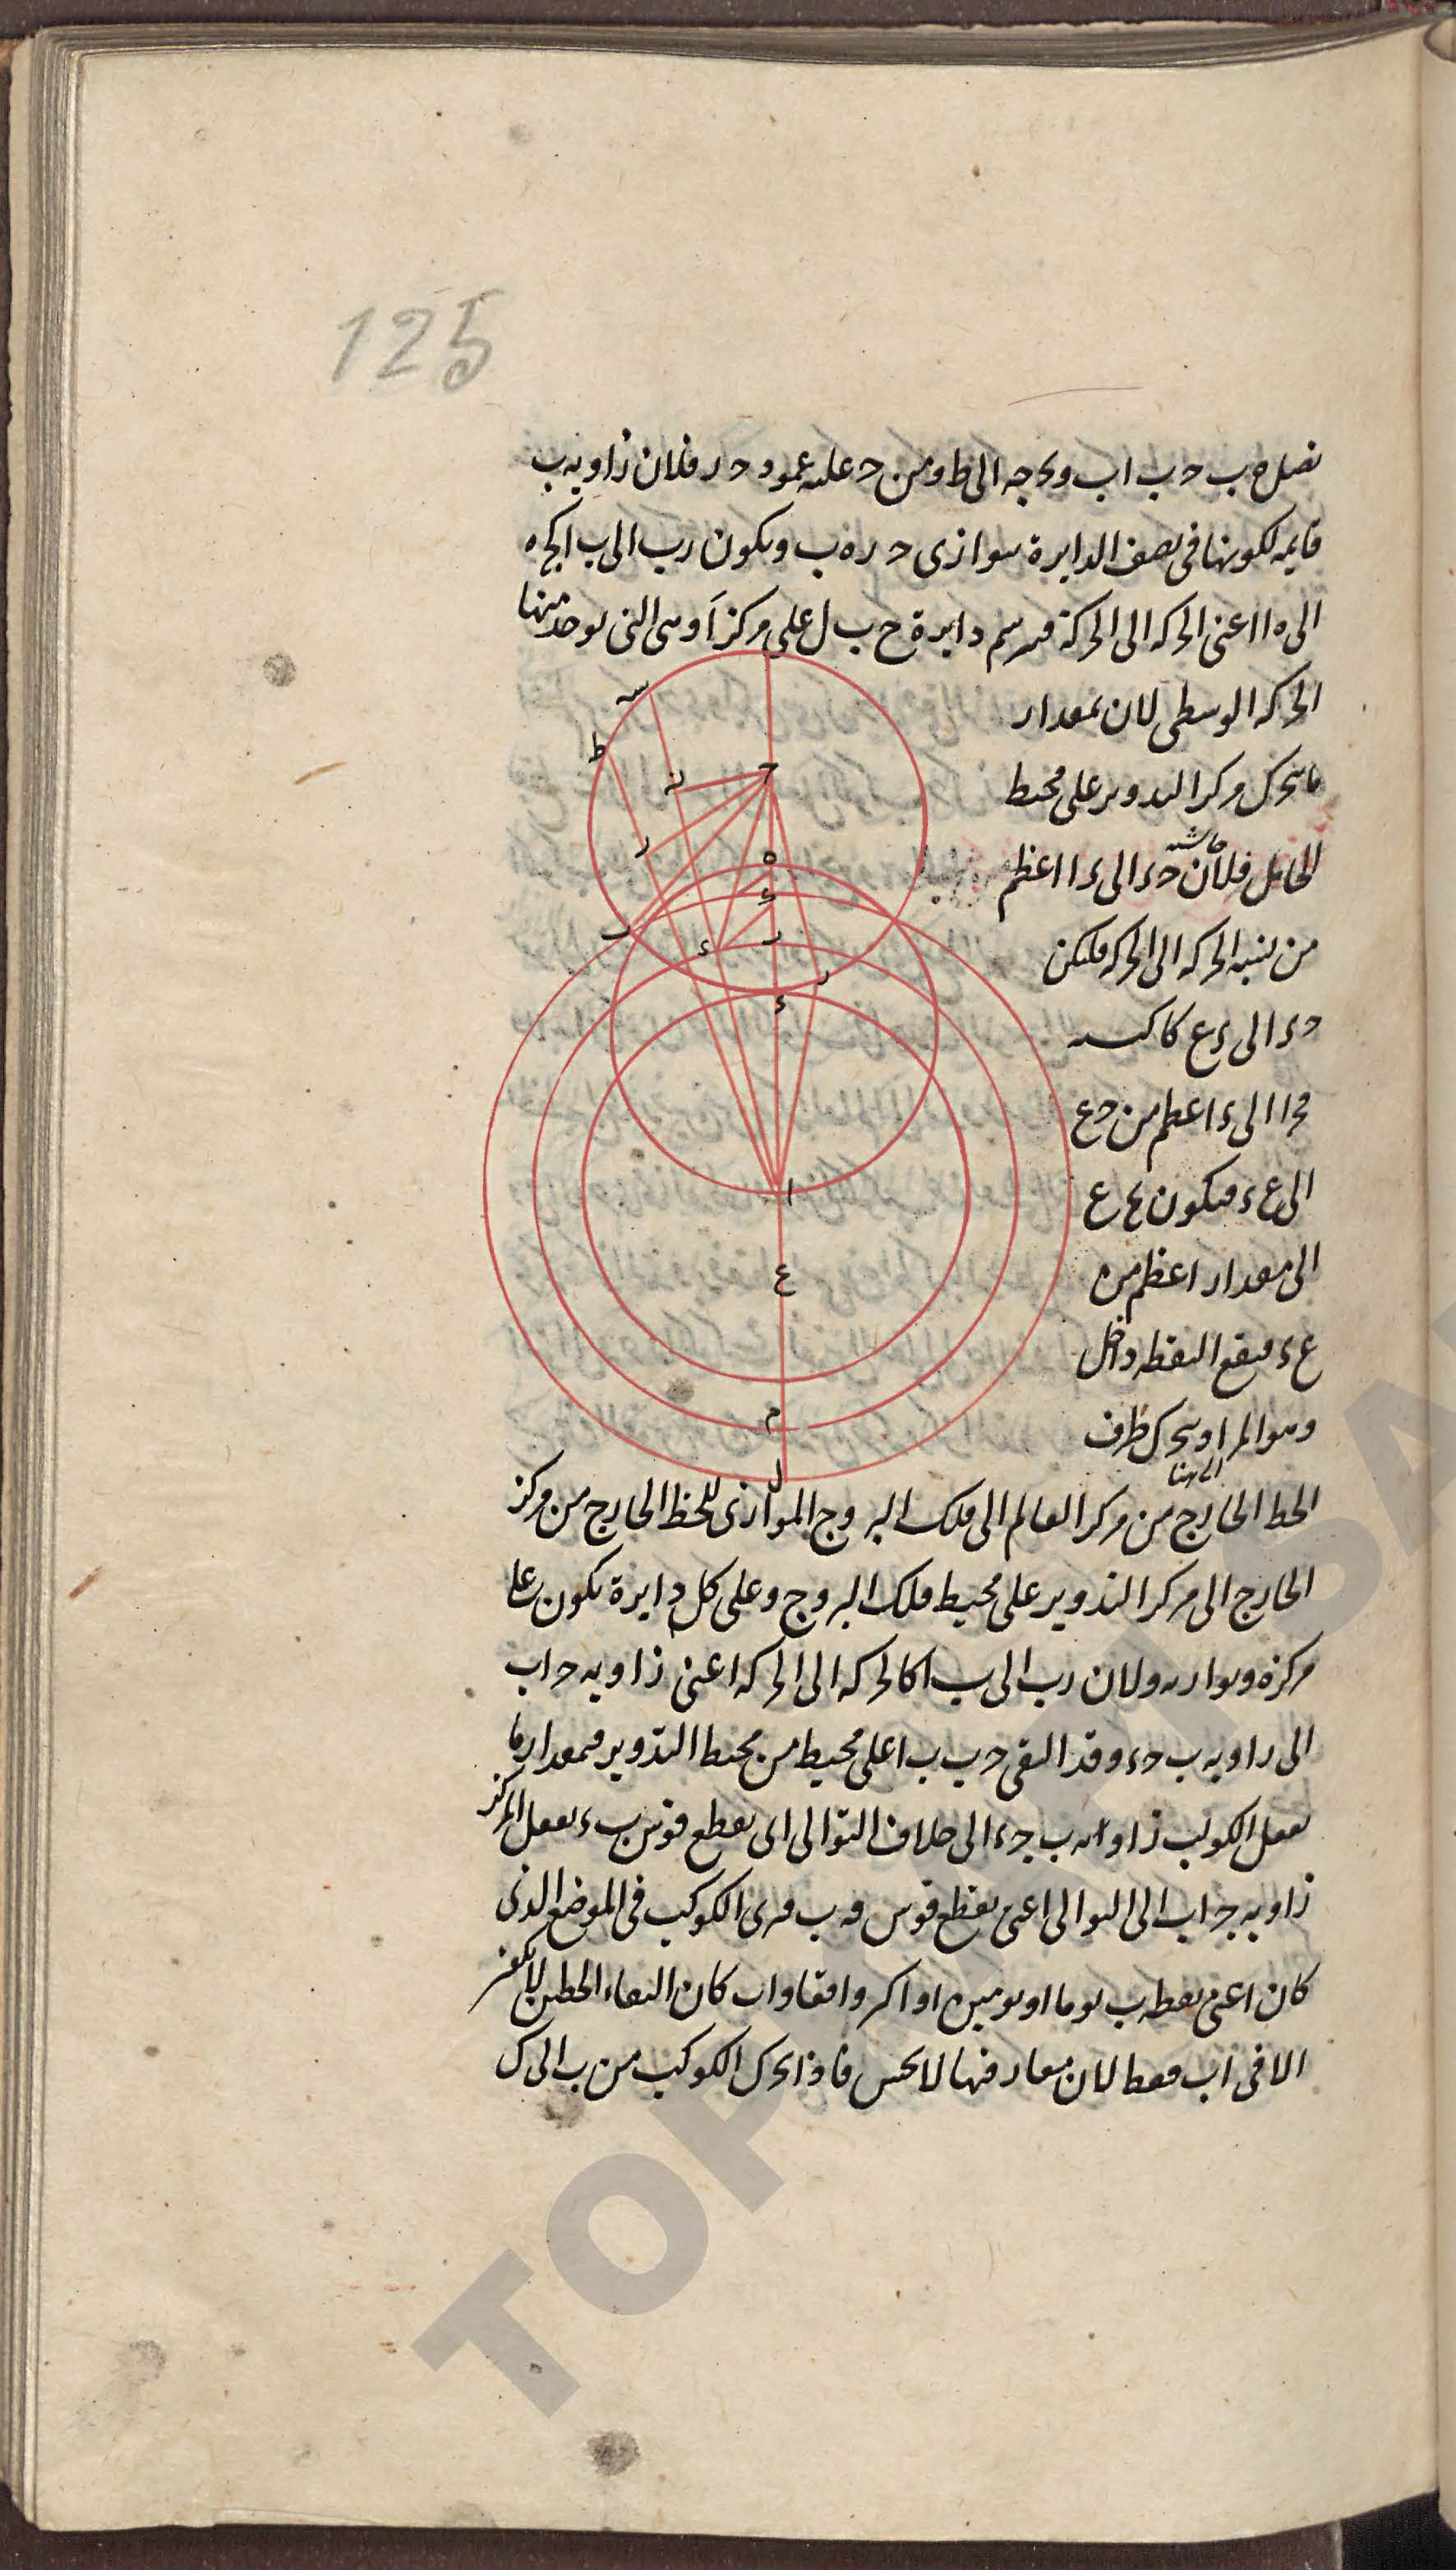 125
نصل ه ب ح ب اب ونخرجه الى ط ومن ح عليه عمود ح ر فلان زاويه ب
قايمه لكونها فى نصف الدايرة يتوازى ح ر ه ب ويكون رب الى ب ا كح ه
الى ه ا اعنى الحركه الى الحركة فنرسم دايرة ح ب ل على مركز ا وهى التى يوجد منها
الحركه الوسطى لان بمقدار
ما يتحرك مركز التدوير على محيط
الحامل فلان حء الى ءا اعظم
حاشيه
من نسبه الحركه الى الحركه فليكن
حء الى ءع كا
الى ءا اعظم من حع
الى عء فيكون ع
الى مقدار اعظم من
عء فيقع النقطه داخل
وهو المراد ويتحرك طرف
الى هنا
الخط الخارج من مركز العالم الى فلك البروج الموازى للخط الخارج من مركز
الخارج الى مركز التدوير على محيط فلك البروج وعلى كل دايرة يكون على
مركزه ويوازيه ولان رب الى ب ا كالحركه الى الحركه اعنى زاويه ح اب
الى زاويه ب حء وقد التقى ح ب ب ا على محيط من محيط التدوير فبمقدار ما
يفعل الكوكب زاوية ب جء الى خلاف التوالى اى يقطع قوس بء يفعل المركز
زاويه ج اب الى التوالى اعنى يقطع قوس ه ب فيرى الكوكب فى الموضع الذى
كان اعنى نقطه ب يوما او يومين او اكثر واقفا وان كان التقاء الخطين لا يكون
الا فى ان فقط لان مفارقتها لا يحس فاذا تحرك الكوكب من ب الى ك
سه
ط
ح
نه
ر
ه
ب
ء
ر
ر
ء
ا
ع
م
ل
TOPKAPI SA